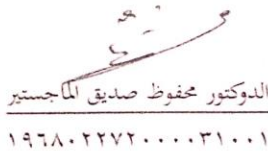 الدوكتور محفوظ صديق الماجستير
١٩٦٨٠٢٢٧٢٠٠٠٠٣١٠٠١